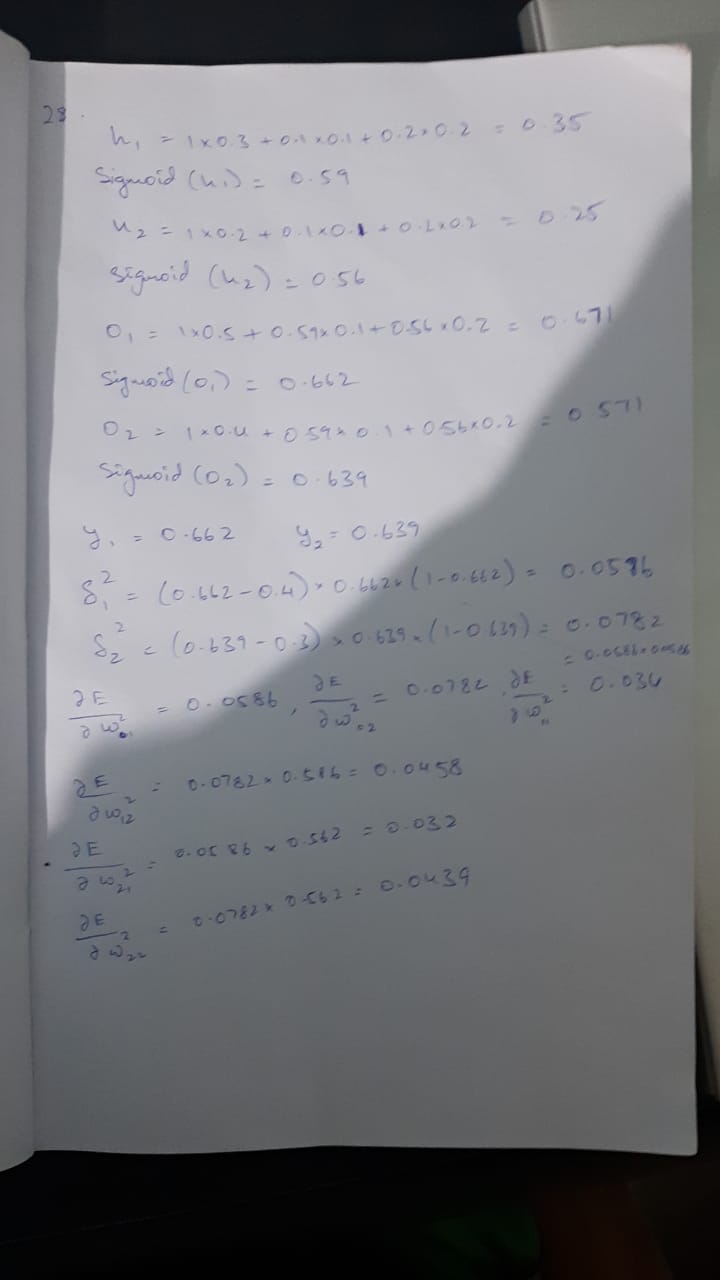 28.
h₁ = 1x0.3 + 0.1x0.1 + 0.2x0.2 = 0.35
Sigmoid (h₁) = 0.59
h₂ = 1x0.2 + 0.1x0.1 + 0.2x0.2 = 0.25
Sigmoid (h₂) = 0.56
O₁ = 1x0.5 + 0.59x0.1 + 0.56x0.2 = 0.671
Sigmoid (O₁) = 0.662
O₂ = 1x0.4 + 0.59x0.1 + 0.56x0.2 = 0.571
Sigmoid (O₂) = 0.639
y₁ = 0.662 y₂ = 0.639
δ₁² = (0.662-0.4) x 0.662x (1-0.662) = 0.0586
δ₂² = (0.639-0.3) x 0.639x (1-0.639) = 0.0782
∂E/∂w₀₁² = 0.0586, ∂E/∂w₀₂² = 0.0782, ∂E/∂w₁₁² = 0.034
∂E/∂w₁₂² = 0.0782x0.586 = 0.0458
∂E/∂w₂₁² = 0.0586 x 0.562 = 0.032
∂E/∂w₂₂² = 0.0782x 0.562 = 0.0439